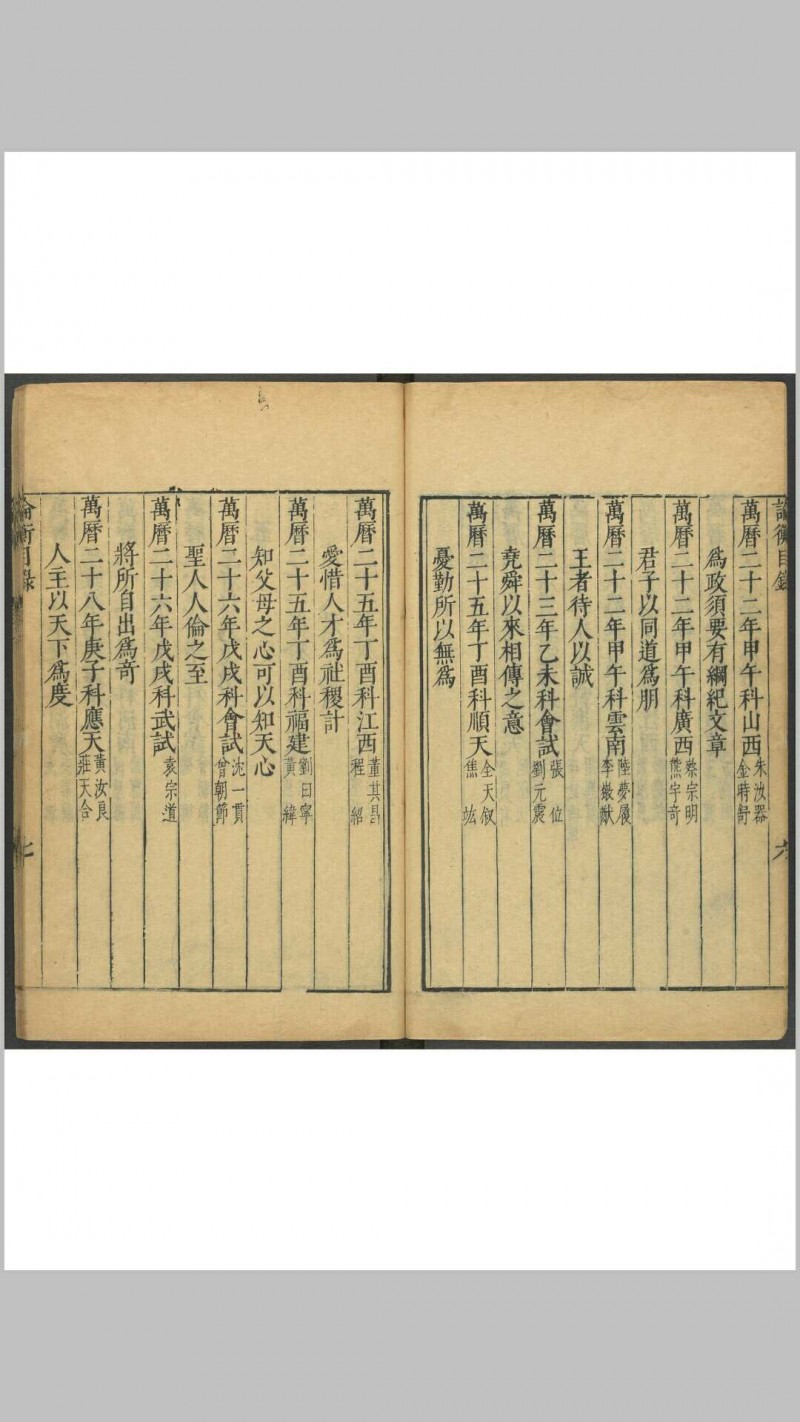 論衡目錄
萬曆二十二年甲午科山西 朱汝器 金時舒
爲政須要有綱紀文章
萬曆二十二年甲午科廣西 蔡宗明 熊宇奇
君子以同道爲朋
萬曆二十二年甲午科雲南 陸夢履 李徽猷
王者待人以誠
萬曆二十三年乙未科會試 張位 劉元震
堯舜以來相傳之意
萬曆二十五年丁酉科順天 全天叙 焦竑
憂勤所以無爲
六
萬曆二十五年丁酉科江西 董其昌 程紹
愛惜人才爲社稷計
萬曆二十五年丁酉科福建 劉曰寧 黃緯
知父母之心可以知天心
萬曆二十六年戊戌科會試 沈一貫 曾朝節
聖人人倫之至
萬曆二十六年戊戌科武試 袁宗道
將所自出爲奇
萬曆二十八年庚子科應天 黃汝良 莊天合
人主以天下爲度
論衡目錄
七